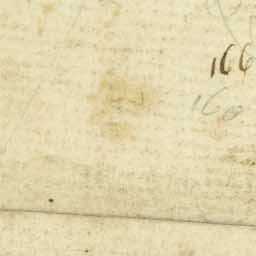 166
160